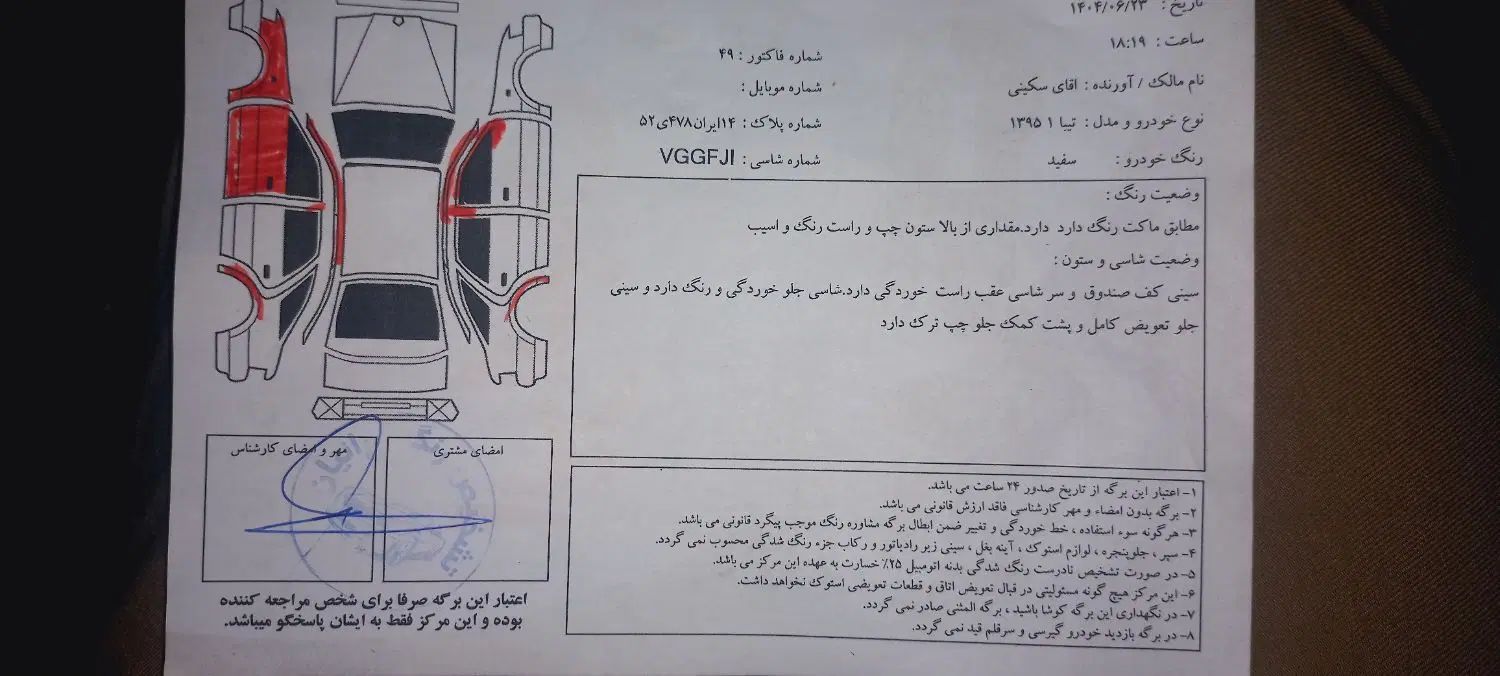 تاریخ : ۱۴۰۴/۰۶/۲۳
ساعت : ۱۸:۱۹
شماره فاکتور : ۴۹
نام مالک / آورنده : اقای سکینی
شماره موبایل :
نوع خودرو و مدل : تیبا ۱ ۱۳۹۵
شماره پلاک : ۱۴ایران۴۷۸ی۵۲
رنگ خودرو : سفید
شماره شاسی : VGGFJI
وضعیت رنگ :
مطابق ماکت رنگ دارد دارد.مقداری از بالا ستون چپ و راست رنگ و اسیب
وضعیت شاسی و ستون :
سینی کف صندوق و سر شاسی عقب راست خوردگی دارد.شاسی جلو خوردگی و رنگ دارد و سینی
جلو تعویض کامل و پشت کمک جلو چپ ترک دارد
امضای مشتری
مهر و امضای کارشناس
اعتبار این برگه صرفا برای شخص مراجعه کننده
بوده و این مرکز فقط به ایشان پاسخگو میباشد.
۱- اعتبار این برگه از تاریخ صدور ۲۴ ساعت می باشد.
۲- برگه بدون امضاء و مهر کارشناسی فاقد ارزش قانونی می باشد.
۳- هرگونه سوء استفاده ، خط خوردگی و تغییر ضمن ابطال برگه مشاوره رنگ موجب پیگرد قانونی می باشد.
۴- سپر ، جلوپنجره ، لوازم استوک ، آینه بغل ، سینی زیر رادیاتور و رکاب جزء رنگ شدگی محسوب نمی گردد.
۵- در صورت تشخیص نادرست رنگ شدگی بدنه اتومبیل ۲۵٪ خسارت به عهده این مرکز می باشد.
۶- این مرکز هیچ گونه مسئولیتی در قبال تعویض اتاق و قطعات تعویضی استوک نخواهد داشت.
۷- در نگهداری این برگه کوشا باشید ، برگه المثنی صادر نمی گردد.
۸- در برگه بازدید خودرو گیرسی و سرقلم قید نمی گردد.